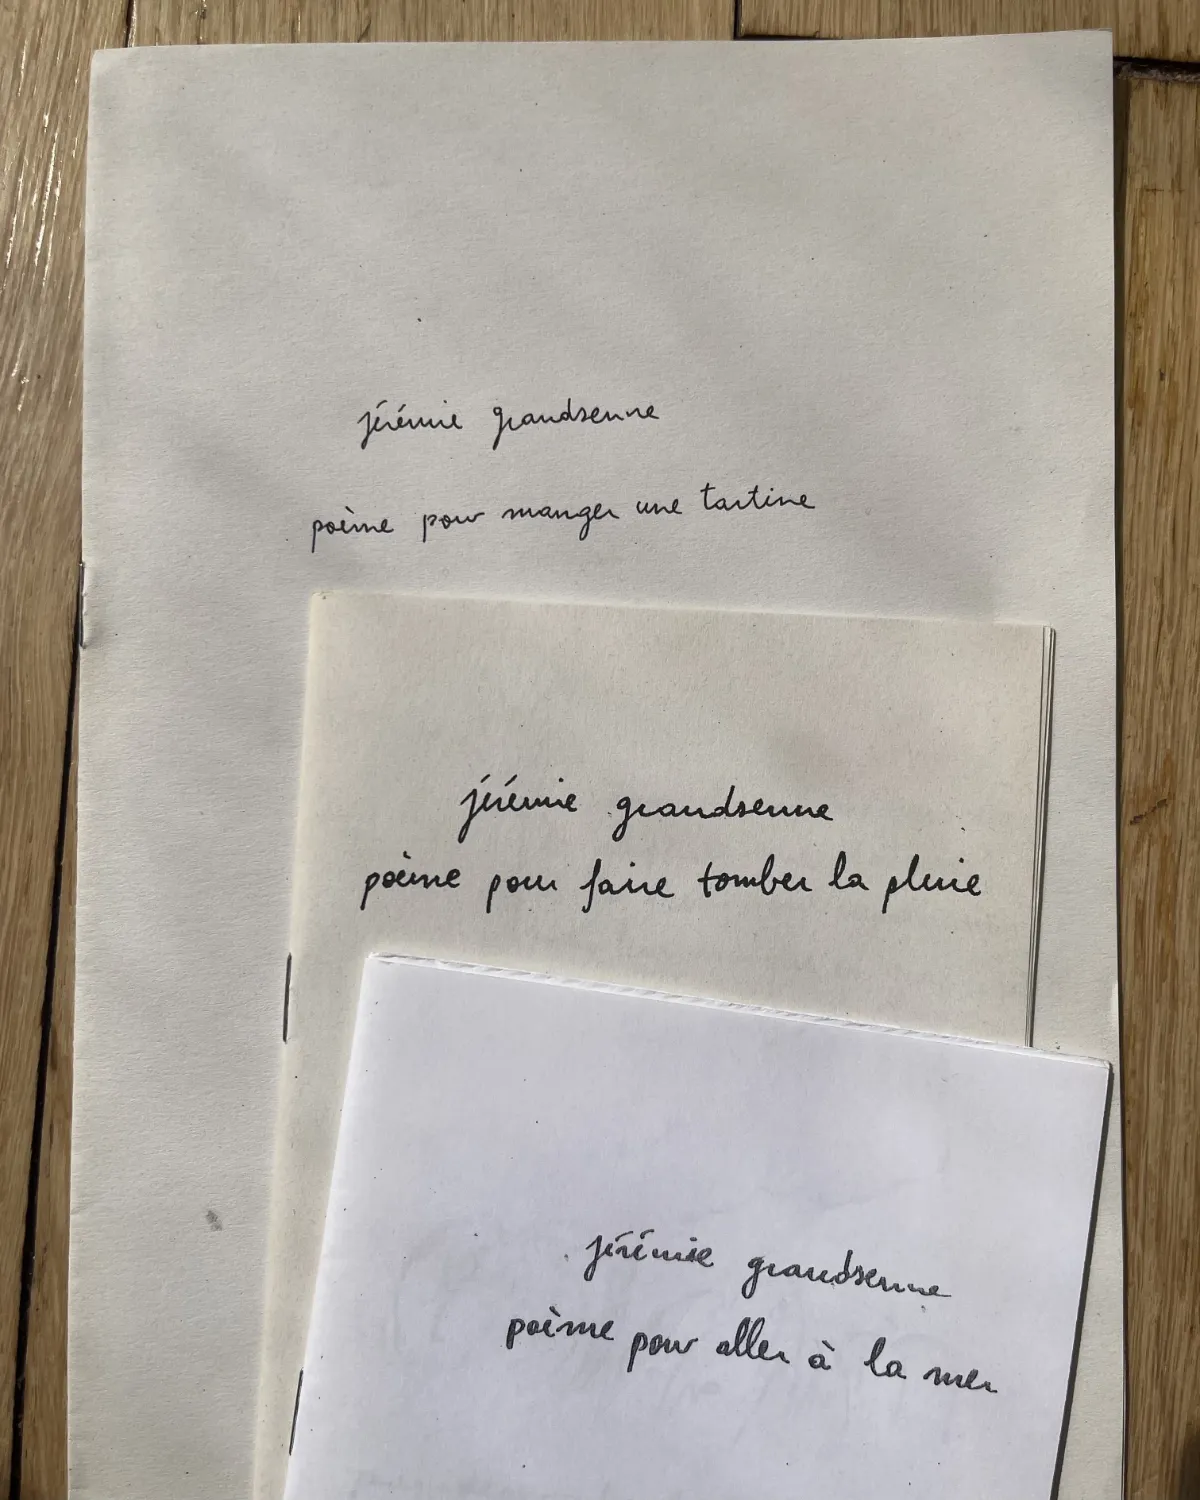 jérémie grandsenne
poème pour manger une tartine
jérémie grandsenne
poème pour faire tomber la pluie
jérémie grandsenne
poème pour aller à la mer